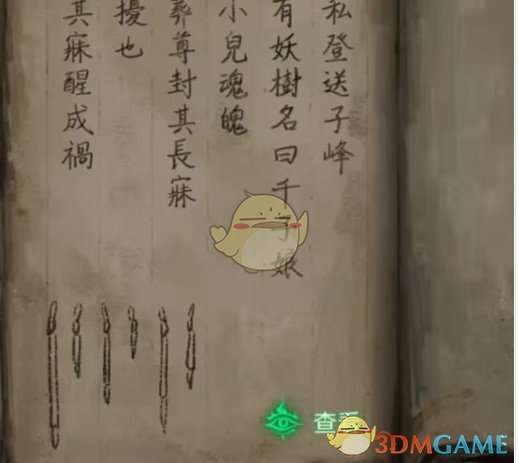 私登送子峰
有妖樹名曰千娘
小兒魂魄
葬尊封其長寐
擾也
其寐醒成禍
查
3DMGAME